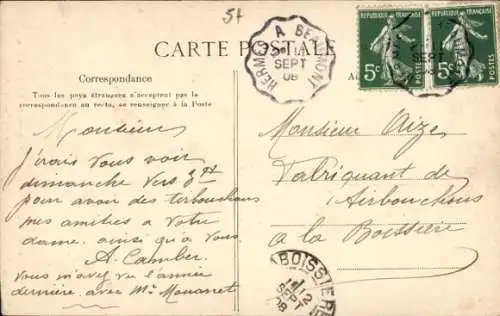 57
CARTE POSTALE
Correspondance
Tous les pays étrangers n'acceptent pas la
correspondance au recto, se renseigner à la Poste
HERMES A BEAUMONT
SEPT
08
REPUBLIQUE FRANÇAISE
REPUBLIQUE FRANÇAISE
5c
5c
POSTES
Monsieur
J'irais vous voir
dimanche vers 3h
pour avoir des tirbouchons
mes amitiés a votre
dame. ainsi qu'a vous
A. Camber
vous m'avez vu l'année
dernière. avec Mr Mouarret
Monsieur Oizel
Fabriquant de
Tirbouchons
a la Boissière
LA BOISSIERE
12
SEPT
08